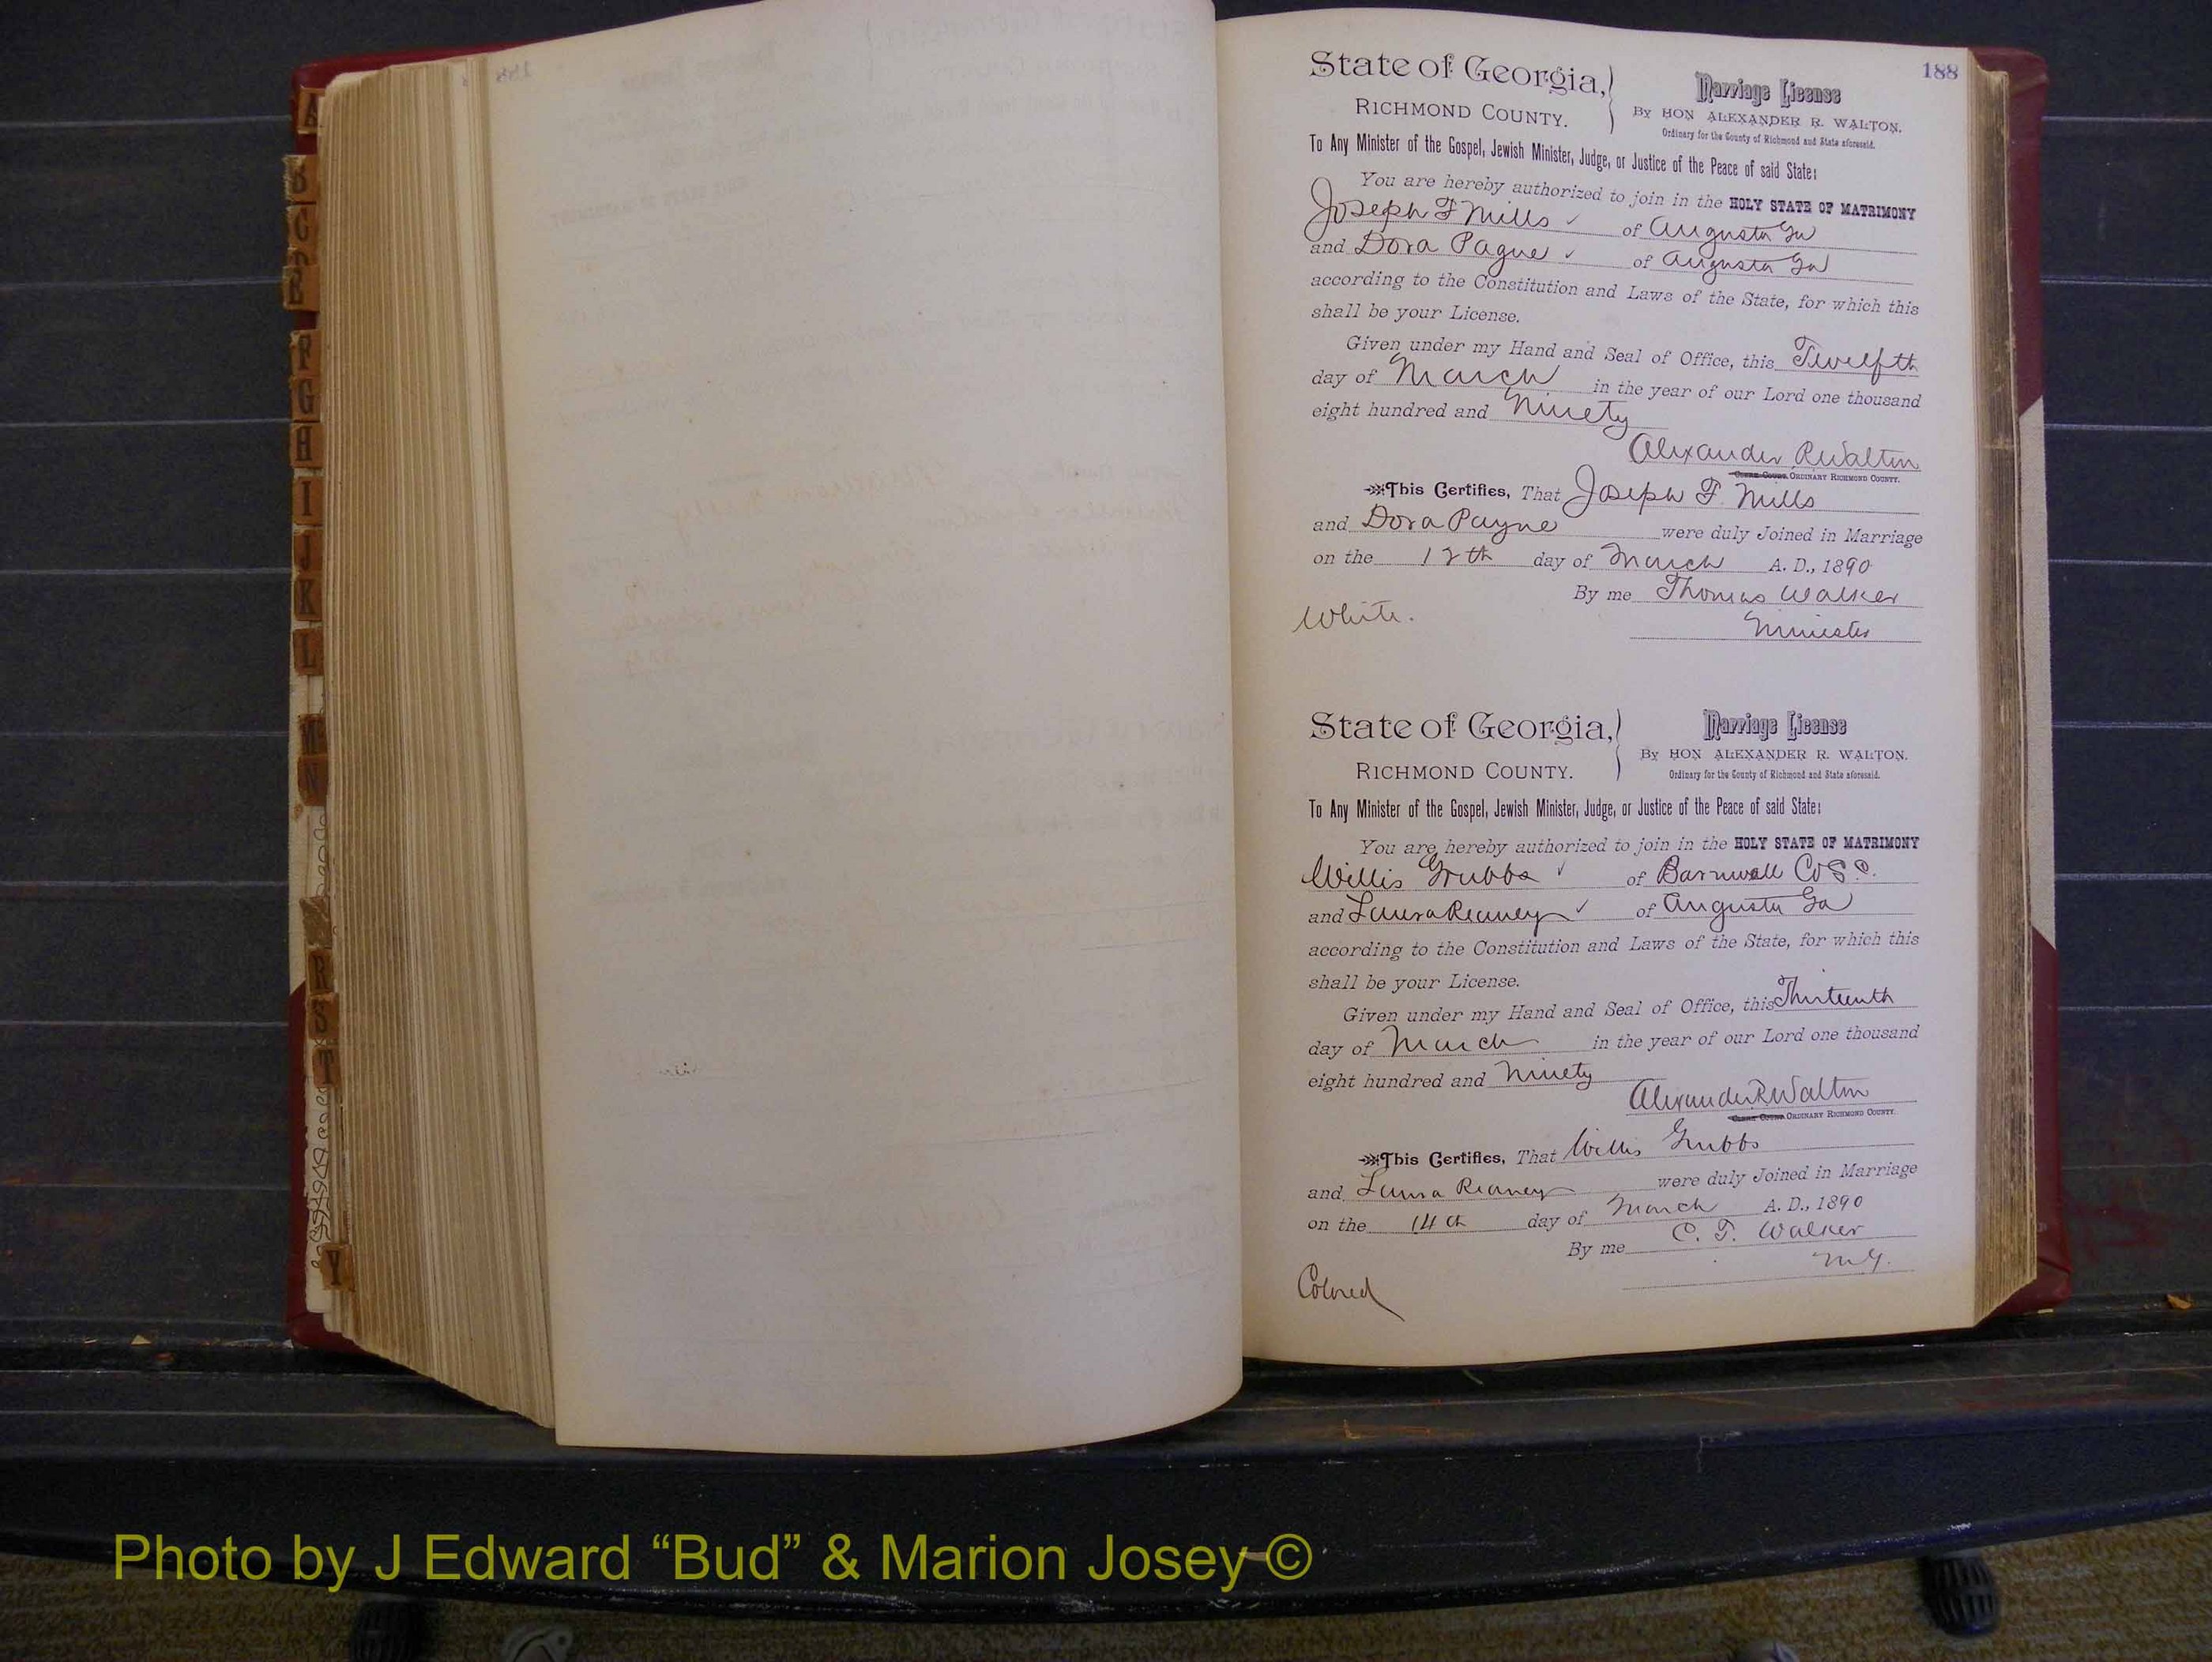 188
State of Georgia,
RICHMOND COUNTY.
Marriage License
By HON ALEXANDER R. WALTON,
Ordinary for the County of Richmond and State aforesaid.
To Any Minister of the Gospel, Jewish Minister, Judge, or Justice of the Peace of said State:
You are hereby authorized to join in the HOLY STATE OF MATRIMONY
Joseph F Mills ✓ of Augusta Ga
and Dora Payne ✓ of Augusta Ga
according to the Constitution and Laws of the State, for which this
shall be your License.
Given under my Hand and Seal of Office, this Twelfth
day of March in the year of our Lord one thousand
eight hundred and Ninety
Alexander R Walton
CLERK COURT ORDINARY RICHMOND COUNTY.
This Certifies, That Joseph F. Mills
and Dora Payne were duly Joined in Marriage
on the 12th day of March A. D., 1890
By me Thomas Walker
Minister
White.
State of Georgia,
RICHMOND COUNTY.
Marriage License
By HON ALEXANDER R. WALTON,
Ordinary for the County of Richmond and State aforesaid.
To Any Minister of the Gospel, Jewish Minister, Judge, or Justice of the Peace of said State:
You are hereby authorized to join in the HOLY STATE OF MATRIMONY
Willis Grubbs ✓ of Barnwell Co S.C.
and Laura Reaney ✓ of Augusta Ga
according to the Constitution and Laws of the State, for which this
shall be your License.
Given under my Hand and Seal of Office, this Thirteenth
day of March in the year of our Lord one thousand
eight hundred and Ninety
Alexander R Walton
CLERK COURT ORDINARY RICHMOND COUNTY.
This Certifies, That Willis Grubbs
and Laura Reaney were duly Joined in Marriage
on the 14th day of March A. D., 1890
By me C. T. Walker
M.G.
Colored
A
B
C
F
G
H
I
J
K
L
M
N
R
S
T
Y
Photo by J Edward “Bud” & Marion Josey ©